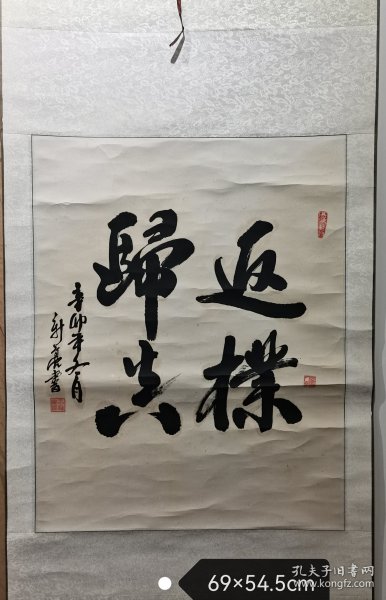 返樸
歸真
辛卯年
書
69×54.5cm
孔夫子旧书网
www.kongfz.com